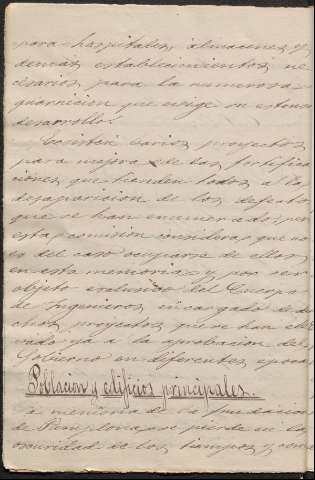 para hospitales, almacenes y
demás establecimientos ne
cesarios para la numerosa
guarnición que exige su estenso
desarrollo.
Existen varios proyectos
para mejora de las fortifica
ciones que tienden todos a la
desaparición de los defectos
que se han enumerado; pero
esta comisión considera que no
es del caso ocuparse de ellos
en esta memoria y por ser
objeto exclusivo del Cuerpo
de Ingenieros encargado de di
chos proyectos que se han ele
vado ya a la aprobación del
Gobierno en diferentes epocas
Población y edificios principales.
a memoria de la fundación
de Pamplona se pierde en la
oscuridad de los tiempos y